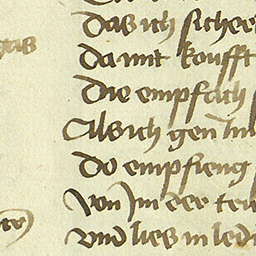 Das ich sicher
Da mit koufft
Die empfach
Als ich gen
Do empfieng
Von Im der
vnd lies in ledi